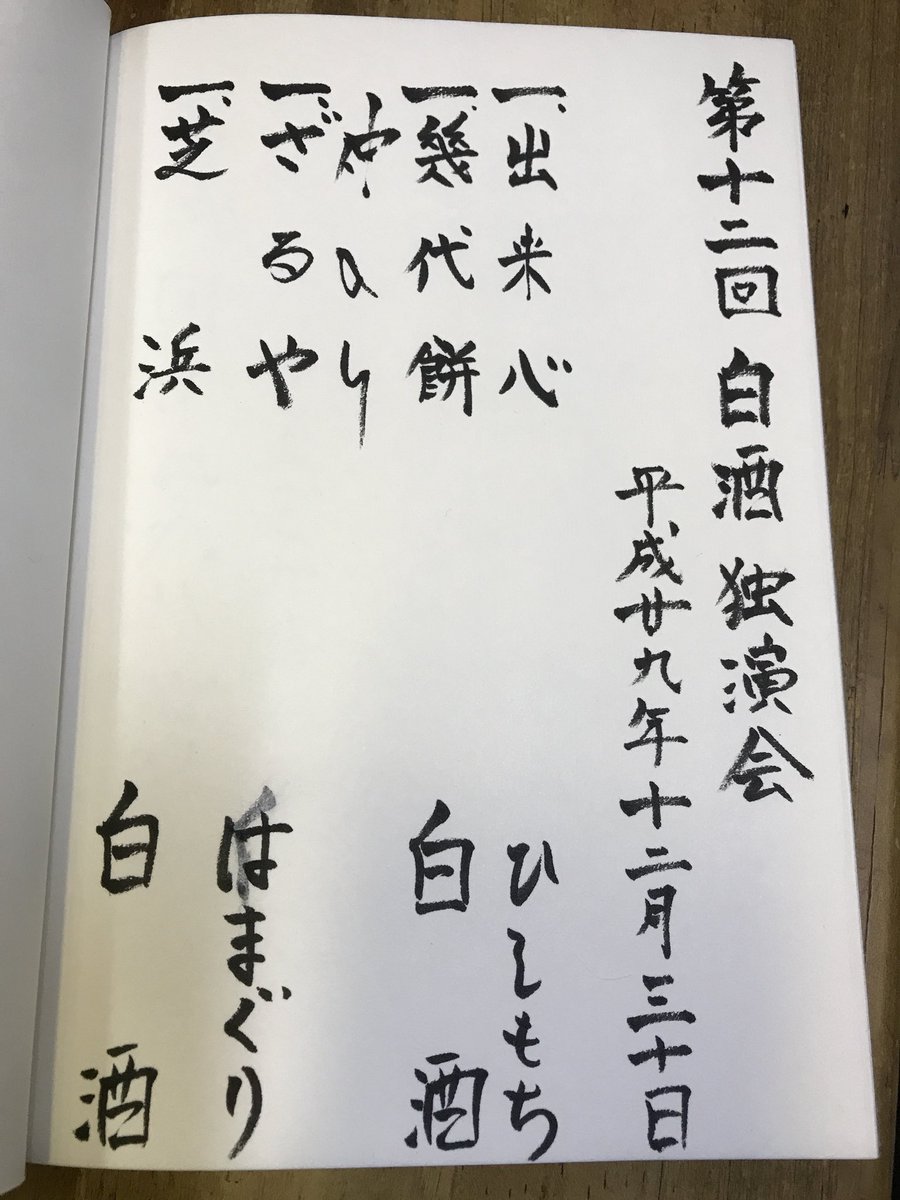 第十二回 白酒 独演会
平成廿九年十二月三十日
一、出来心 ひしもち
一、幾代餅 白酒
仲のり
一、ざるや はまぐり
一、芝浜 白酒